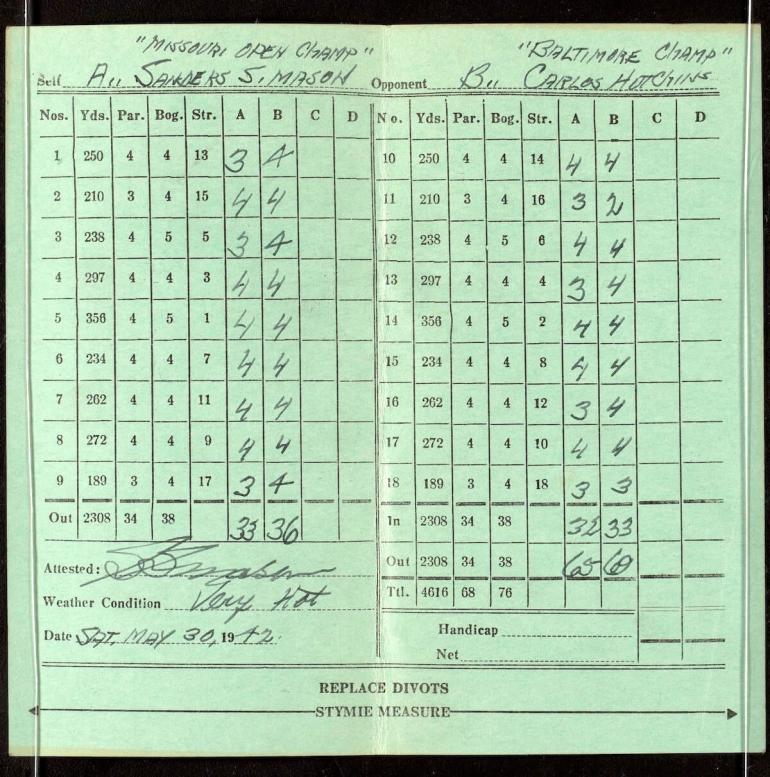 "MISSOURI OPEN CHAMP" "BALTIMORE CHAMP"
Self A,, SANDERS S. MASON Opponent B,, CARLOS HUTCHINS
Nos. Yds. Par. Bog. Str. A B C D No. Yds. Par. Bog. Str. A B C D
1 250 4 4 13 3 4 10 250 4 4 14 4 4
2 210 3 4 15 4 4 11 210 3 4 16 3 2
3 238 4 5 5 3 4 12 238 4 5 6 4 4
4 297 4 4 3 4 4 13 297 4 4 4 3 4
5 356 4 5 1 4 4 14 356 4 5 2 4 4
6 234 4 4 7 4 4 15 234 4 4 8 4 4
7 262 4 4 11 4 4 16 262 4 4 12 3 4
8 272 4 4 9 4 4 17 272 4 4 10 4 4
9 189 3 4 17 3 4 18 189 3 4 18 3 3
Out 2308 34 38 33 36 In 2308 34 38 32 33
Attested: Out 2308 34 38 65 69
Weather Condition Very Hot Ttl. 4616 68 76
Date SAT. MAY 30, 1942. Handicap
Net
REPLACE DIVOTS
STYMIE MEASURE